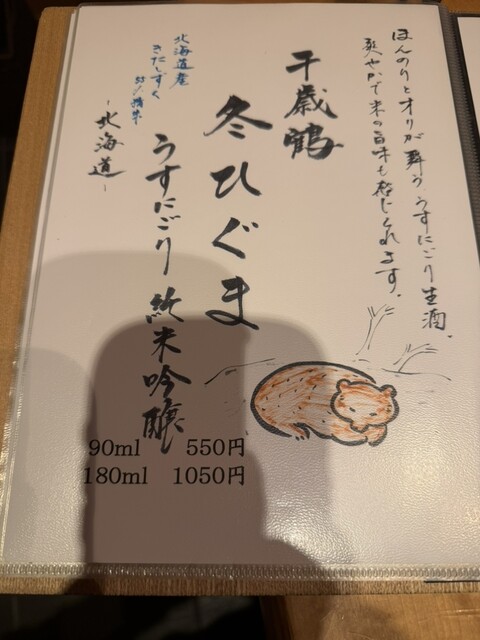 ほんのりとオリが舞う、うすにごり生酒。
爽やかで米の旨味も感じられます。
千歳鶴
冬ひぐま
うすにごり 純米吟醸
北海道産
きたしずく
55%精米
-北海道-
90ml 550円
180ml 1050円